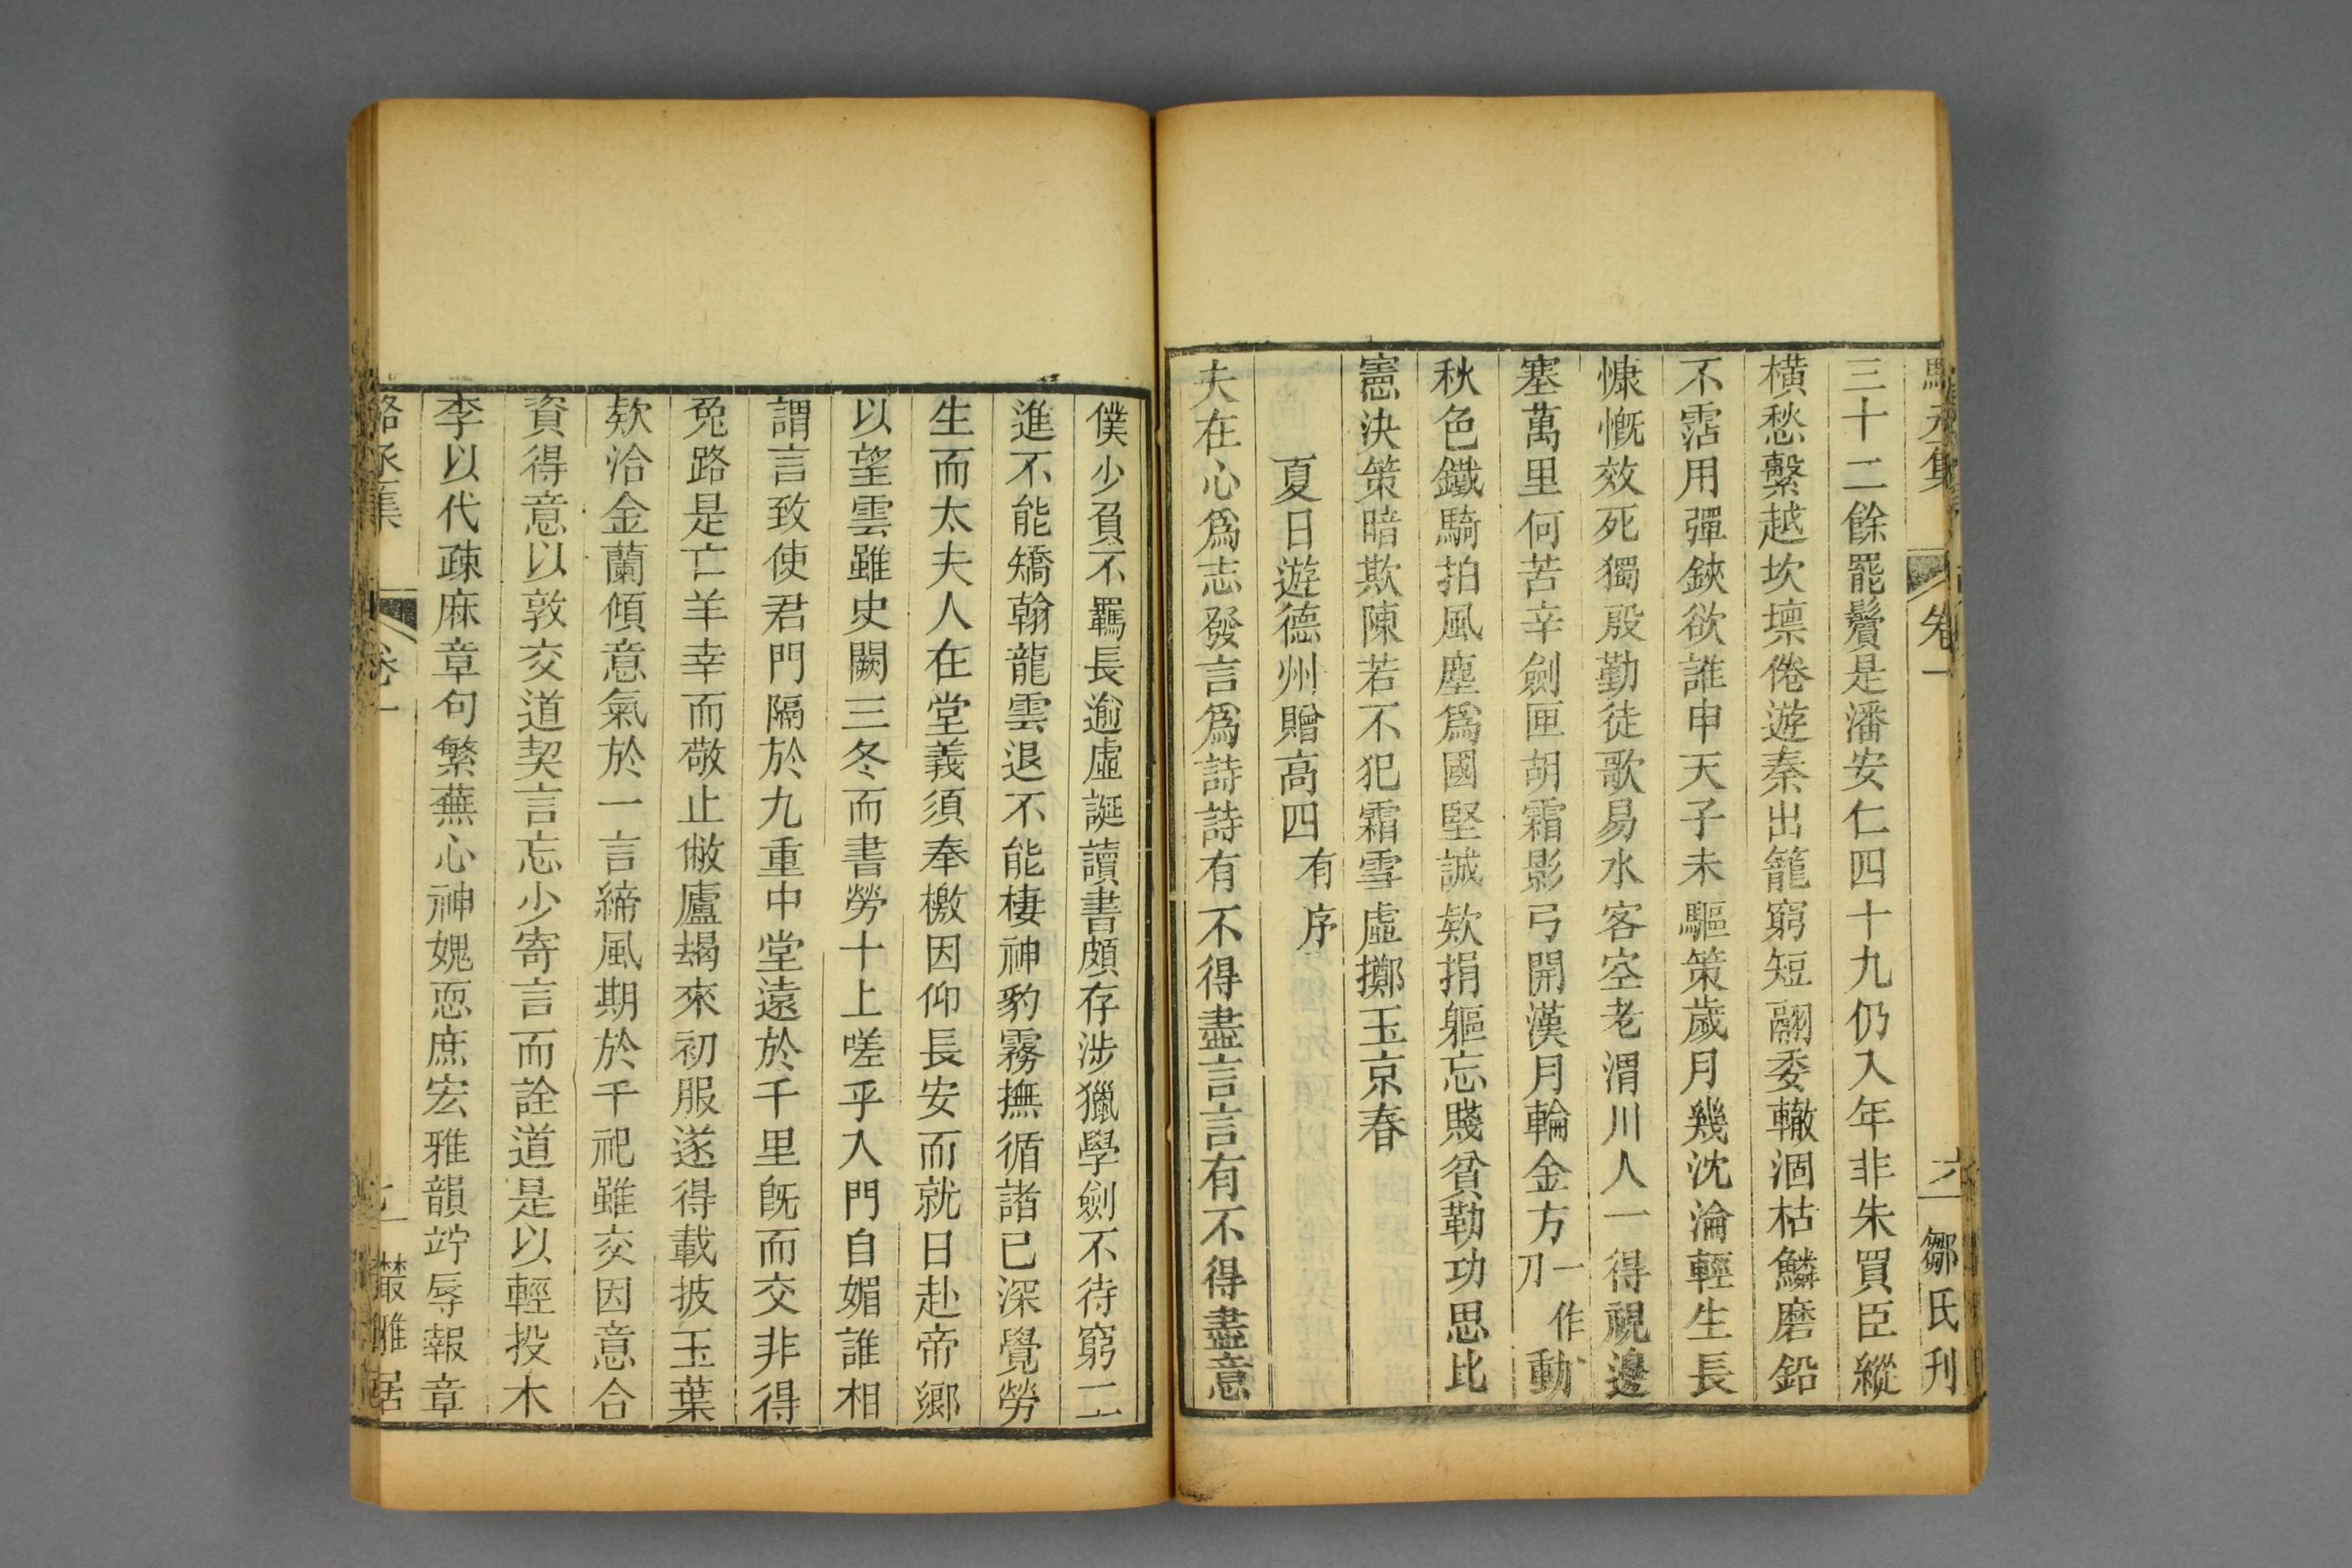 駱丞集 卷一 六 鄒氏刊
三十二餘罷鬢是潘安仁四十九仍入年非朱買臣縱
橫愁繫越坎壈倦遊秦出籠窮短翮委轍涸枯鱗磨鉛
不霑用彈鋏欲誰申天子未驅策歲月幾沈淪輕生長
慷慨效死獨殷勤徒歌易水客空老渭川人一得視邊
塞萬里何苦辛劍匣胡霜影弓開漢月輪金方一作刀動
秋色鐵騎拍風塵爲國堅誠欵捐軀忘賤貧勒功思比
憲決策暗欺陳若不犯霜雪虛擲玉京春
夏日遊德州贈高四有序
夫在心爲志發言爲詩詩有不得盡言言有不得盡意
僕少負不羈長逾虛誕讀書頗存涉獵學劍不待窮工
進不能矯翰龍雲退不能棲神豹霧撫循諸已深覺勞
生而太夫人在堂義須奉檄因仰長安而就日赴帝鄉
以望雲雖史闕三冬而書勞十上嗟乎入門自媚誰相
謂言致使君門隔於九重中堂遠於千里旣而交非得
兔路是亡羊幸而敬止敝廬朅來初服遂得載披玉葉
欵洽金蘭傾意氣於一言締風期於千祀雖交因意合
資得意以敦交道契言忘少寄言而詮道是以輕投木
李以代疎麻章句繁蕪心神媿恧庶宏雅韻竚辱報章
駱丞集 卷一 七 叢雅居